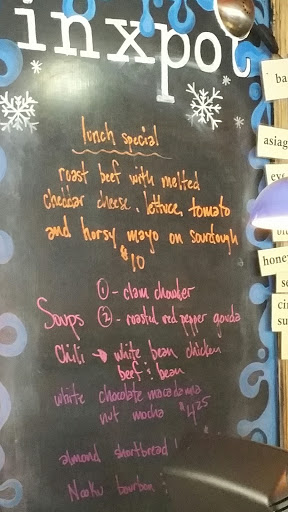 inxpot
lunch special
roast beef with melted
cheddar cheese, lettuce, tomato
and horsy mayo on sourdough
$10
① - clam chowder
Soups ② - roasted red pepper gouda
Chili → white bean chicken
beef & bean
white chocolate macadamia
nut mocha $4.25
almond shortbread
Nooku bourbon
ba
asiag
eve
honey
se
cin
su